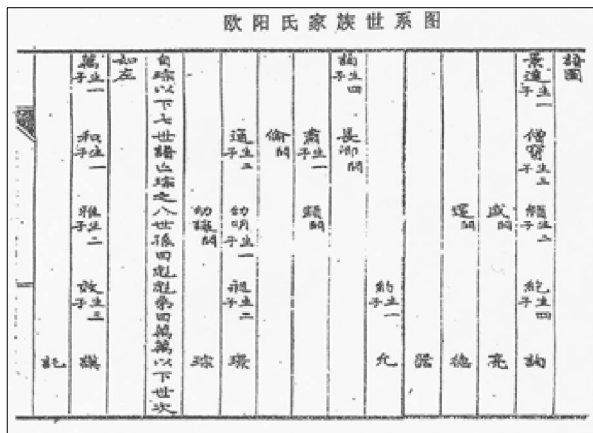 欧阳氏家族世系图
譜圖
景達生一子 僧寶生三子 頠生二子 紇生四子 詢
盛闕 亮
邃闕 德
約生一子 允
詢生四子 長卿闕
肅生一子
倫闕
通生二子 幼明生一子 昶生二子 璟
幼讓闕 琮
自琮以下七世譜亡琮之八世孫曰彪彪弟曰萬萬以下世次
如左
萬生一子 和生一子 雅生二子 效生三子 謨
託